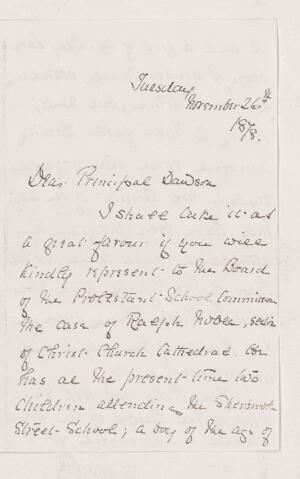 Tuesday
November 26th
1878.
Dear Principal Dawson
I shall take it as
a great favour if you will
kindly represent to the Board
of the Protestant School Commission
the case of Ralph
of Christ Church Cathedral. He
has at the present time two
children attending the Sherbrooke
Street School; a boy of the age of